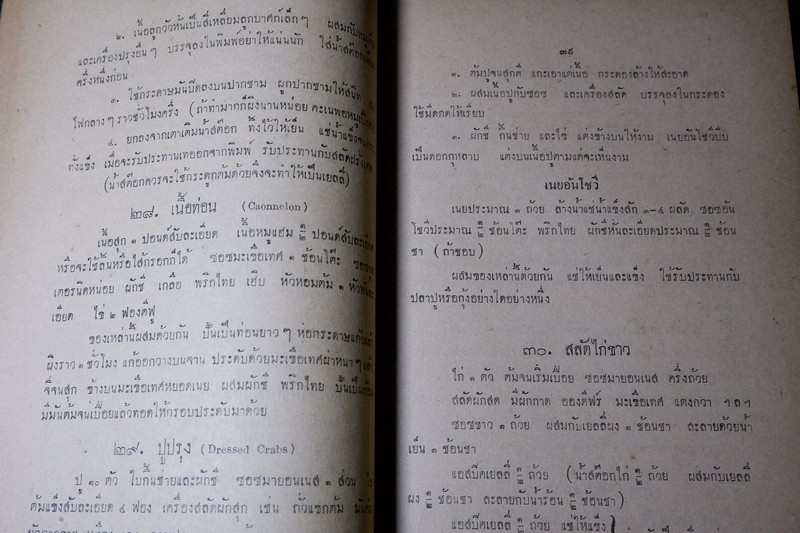 ๒. เนื้อลูกวัวหั่นเป็นสี่เหลี่ยมลูกบาศก์เล็กๆ ผสมกับหมู
และเครื่องปรุงอื่นๆ บรรจุลงในพิมพ์อย่าให้แน่นนัก ใส่น้ำสต๊อก
ครึ่งหนึ่งก่อน
๓. ใช้กระดาษมันปิดลงบนปากชาม ผูกปากชามให้สนิท
ไฟกลางๆ ราวชั่วโมงครึ่ง (ถ้าทำมากก็ผึ่งนานหน่อย คะเนพอหมู
๔. ยกลงจากเตาเติมน้ำสต๊อก ทิ้งไว้ให้เย็น แช่น้ำแข็งจน
ทั้งแข็ง เมื่อจะรับประทานเทออกจากพิมพ์ รับประทานกับสลัดฝรั่ง
(น้ำสต๊อกควรจะใช้กระดูกต้มด้วยจึงจะทำให้เป็นเยลลี่)
๒๘. เนื้อท่อน (Caonnelon)
เนื้อสุก ๑ ปอนด์สับละเอียด เนื้อหมูแฮม ½ ปอนด์สับละเอียด
หรือจะใช้ลิ้นหรือไส้กรอกก็ได้ ซอซมะเขือเทศ ๑ ช้อนโต๊ะ ซอซวูส
เตอรนิดหน่อย ผักชี เกลือ พริกไทย เฮิบ หัวหอมต้ม ๑ หัวหั่นละ
เอียด ไข่ ๒ ฟองตีฟู
ของเหล่านี้ผสมด้วยกัน ปั้นเป็นท่อนยาวๆ ห่อกระดาษแก้วแล้ว
ผิงราว ๑ ชั่วโมง แก้ออกวางบนจาน ประดับด้วยมะเขือเทศผ่าหนาๆ
จี่จนสุก ข้างบนมะเขือเทศหยอดเนย ผสมผักชี พริกไทย ปั้นเป็นก้อน
มีมันต้มจนเปื่อยแล้วทอดให้กรอบประดับมาด้วย
๒๙. ปูปรุง (Dressed Crabs)
ปู ๑๐ ตัว ใบกึ้นช่ายและผักชี ซอซมายอนเนส ๑ ส่วน
ต้มแข็งสับละเอียด ๔ ฟอง เครื่องสลัดผักสุก เช่น ถั่วแขกต้ม
๓๙
๑. ต้มปูจนสุกดี แกะเอาแต่เนื้อ กระดองล้างให้สะอาด
๒. ผสมเนื้อปูกับซอซ และเครื่องสลัด บรรจุลงในกระดอง
ใช้มีดกดให้เรียบ
๓. ผักชี กึ้นช่าย และไข่ แต่งข้างบนให้งาม เนยอันโชวีบีบ
เป็นดอกกุหลาบ แต่งบนเนื้อปูตามแต่จะเห็นงาม
เนยอันโชวี
เนยประมาณ ๑ ถ้วย ล้างน้ำแช่น้ำแข็งสัก ๓-๔ ผลัด ซอซอัน
โชวีประมาณ ½ ช้อนโต๊ะ พริกไทย ผักชีหั่นละเอียดประมาณ ½ ช้อน
ชา (ถ้าชอบ)
ผสมของเหล่านี้ด้วยกัน แช่ให้เย็นและแข็ง ใช้รับประทานกับ
ปลาปูหรือกุ้งอย่างใดอย่างหนึ่ง
๓๐. สลัดไก่ขาว
ไก่ ๑ ตัว ต้มจนเริ่มเปื่อย ซอซมายอนเนส ครึ่งถ้วย
สลัดผักสด มีผักกาด ออดีฟร์ มะเขือเทศ แตงกวา ฯลฯ
ซอซขาว ๑ ถ้วย ผสมกับเยลลี่ผง ๑ ช้อนชา ละลายด้วยน้ำ
เย็น ๑ ช้อนชา
แอสบีคเยลลี่ ½ ถ้วย (น้ำสต๊อกไก่ ½ ถ้วย ผสมกับเยลลี่
ผง ½ ช้อนชา ละลายกับน้ำร้อน ½ ช้อนชา)
แอสบีคเยลลี่ ½ ถ้วย แช่ให้แข็ง)